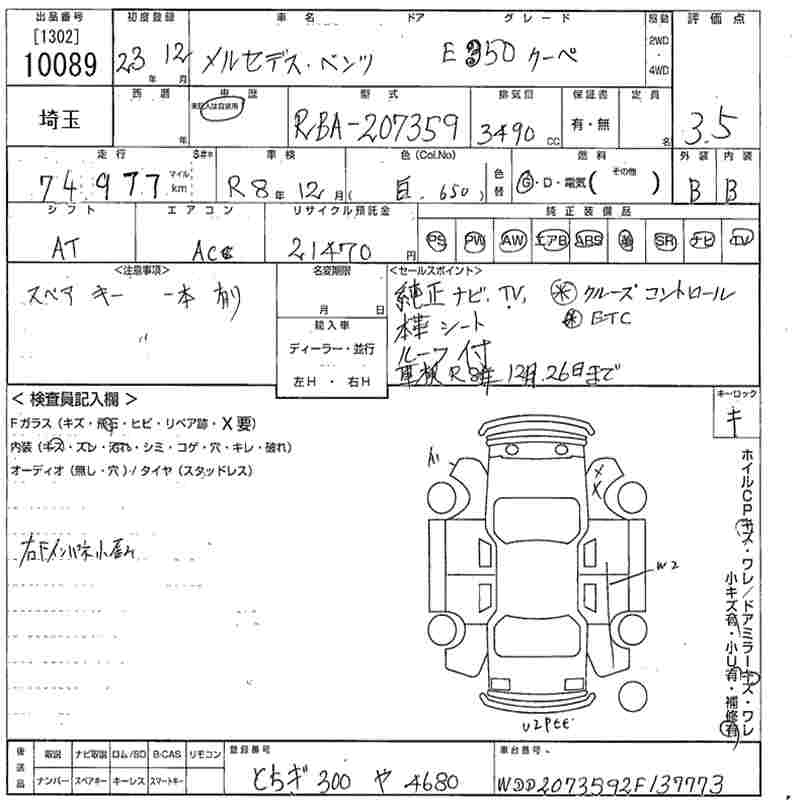 出品番号 初度登録 車名 ドア グレード 駆動 評価点
[1302]
10089 23年 12月 メルセデス・ベンツ E350 クーペ 2WD・4WD 3.5
西暦 車歴 型式 排気量 保証書 定員
埼玉 年 未記入は自家用 RBA-207359 3490cc 有・無 名
走行 $#* 車検 色 (Col.No) 色替 燃料 外装 内装
74,977 マイル km R8年 12月 白. 650 G・D・電気 ( その他 ) B B
シフト エアコン リサイクル預託金 純正装備品
AT AC 21470円 PS PW AW エアB ABS 革 SR ナビ TV
<注意事項> 名変期限 <セールスポイント>
スペアキー 一本有り 月 日 純正ナビ、TV、 クルーズコントロール
輸入車 本革シート ETC
ディーラー・並行 ルーフ付
左H・右H 車検R8年12月26日まで
<検査員記入欄> キーロック
Fガラス (キズ・飛石・ヒビ・リペア跡・X要) キ
内装 (キズ・スレ・汚れ・シミ・コゲ・穴・キレ・破れ)
オーディオ (無し・穴) / タイヤ (スタッドレス)
ホイルCPキズ・ワレ/ドアミラーキズ・ワレ
小キズ有・小U有・補修有
A1
XX
右Fインパネ小歪み
W2
U2PEE
後送品 取説 ナビ取説 ロム/SD B-CAS リモコン 登録番号 車台番号
ナンバー スペアキー キーレス スマートキー とちぎ 300 や 4680 WDD2073592F137773